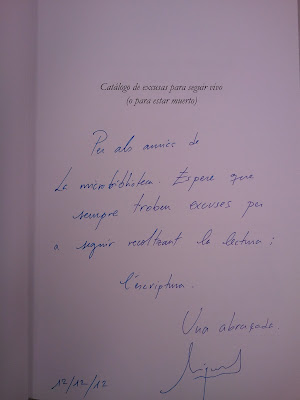 Catálogo de excusas para seguir vivo
(o para estar muerto)
Per als amics de
La microbiblioteca. Espere que
sempre troben excuses per
a seguir recolteant la lectura i
l'escriptura.
Una abraçada.
12/12/12